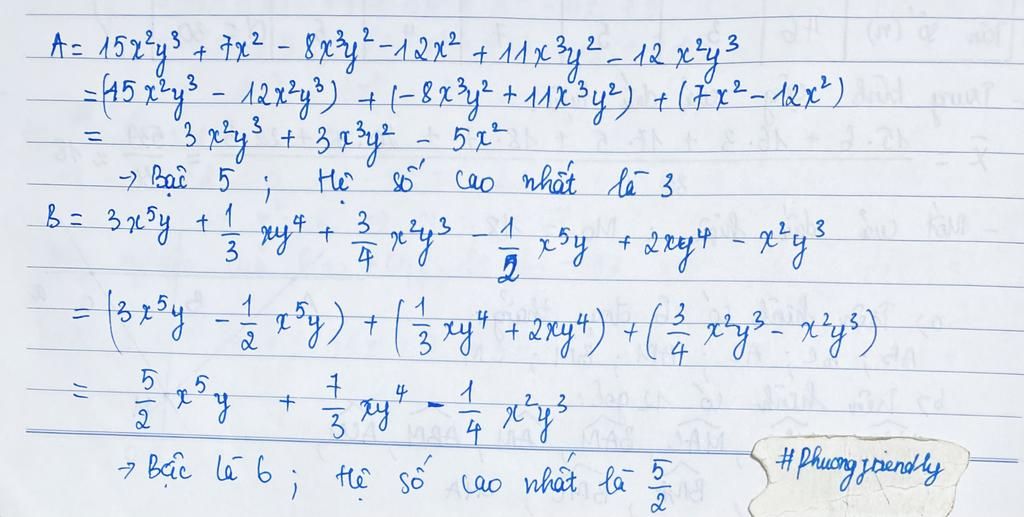 A = 15x²y³ + 7x² - 8x³y² - 12x² + 11x³y² - 12x²y³
= (15x²y³ - 12x²y³) + (-8x³y² + 11x³y²) + (7x² - 12x²)
= 3x²y³ + 3x³y² - 5x²
→ Bậc 5 ; Hệ số cao nhất là 3
B = 3x⁵y + 1/3 xy⁴ + 3/4 x²y³ - 1/2 x⁵y + 2xy⁴ - x²y³
= (3x⁵y - 1/2 x⁵y) + (1/3 xy⁴ + 2xy⁴) + (3/4 x²y³ - x²y³)
= 5/2 x⁵y + 7/3 xy⁴ - 1/4 x²y³
→ Bậc là 6 ; Hệ số cao nhất là 5/2
#Phuongfriendly